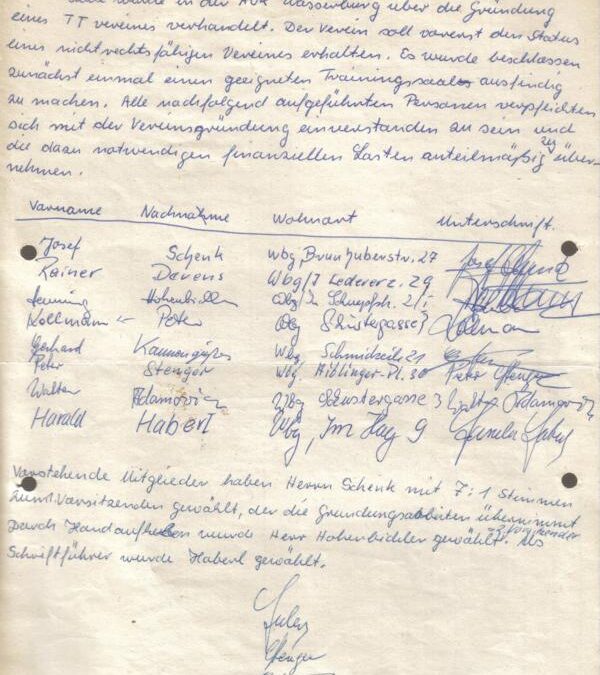 wurde in der Wasserburg über die Gründung
eines TT vereines verhandelt. Der Verein soll vorerst den Status
eines nichtrechtsfähigen Vereines erhalten. Es wurde beschlossen
zunächst einmal einen geeigneten Trainingssaal ausfindig
zu machen. Alle nachfolgend aufgeführten Personen verpflichten
sich mit der Vereinsgründung einverstanden zu sein und
die dazu notwendigen finanziellen Lasten anteilmäßig zu über-
nehmen.
Vorname Nachnahme Wohnort Unterschrift.
Josef Schenk Wbg, Brunhuberstr. 27
Rainer Davens Wbg/I Ledererz. 29
Henning Hohenbichler Wbg/In
Kollmann Peter Wbg Schustergasse 3 Kolman
Gerhard Wbg Schmidzeile 21
Peter Stenger Wbg. Aiblinger-Pl. 30 Peter Stenger
Walter Adamovic Wbg Schustergasse 3 Walter Adamovic
Harald Haberl Wbg, Im Hag 9
Vorstehende Mitglieder haben Herrn Schenk mit 7:1 Stimmen
zum 1. Vorsitzenden gewählt, der die Gründungsarbeiten übernimmt
Durch Handaufheben wurde Herr Hohenbichler gewählt. Als
Schriftführer wurde Haberl gewählt.
Stenger